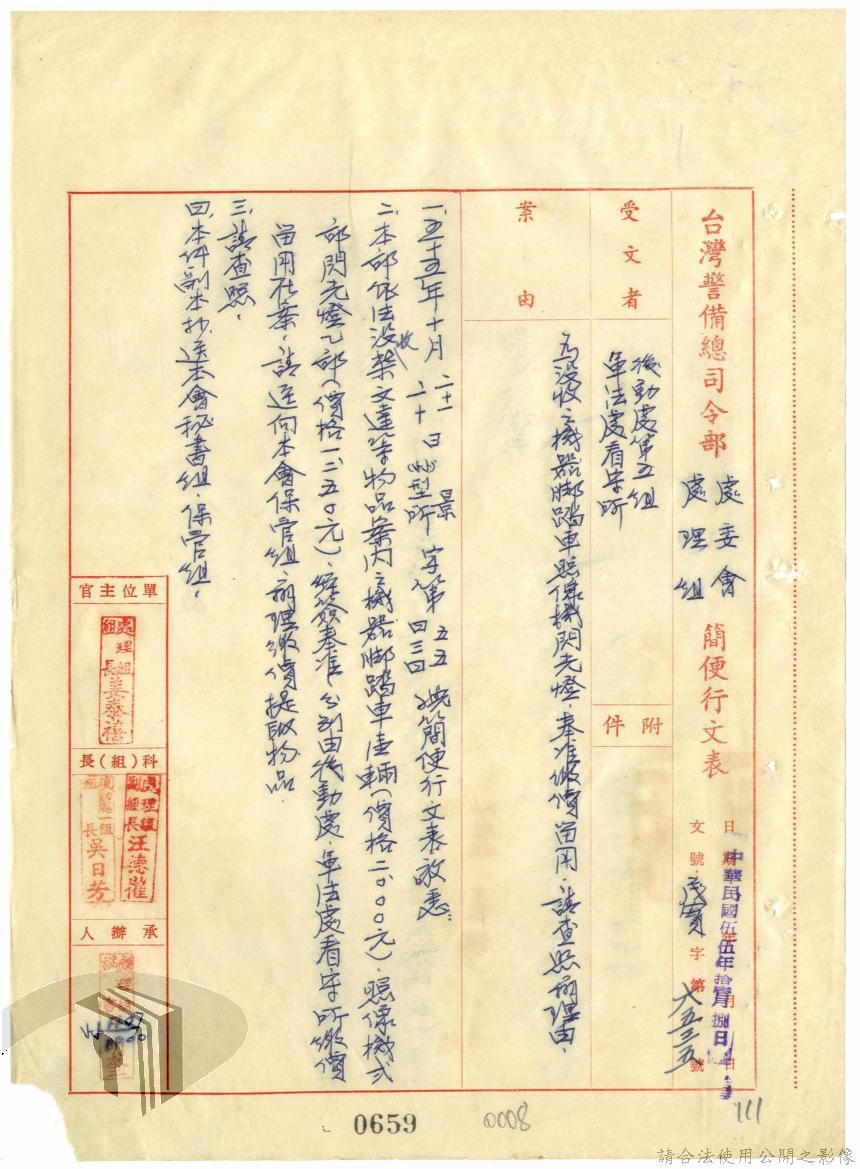 台灣警備總司令部 處委會 處理組 簡便行文表
日期 中華民國伍伍年拾壹月捌日
文號 字第六五三五號
受文者
後勤處第五組
軍法處看守所
附件
案由
為沒收之機器脚踏車照像機閃光燈,奉准繳價留用,請查照辦理由,
一、五十五年十月 二十一 二十 日 景 字第 五五 四三四 號簡便行文表敬悉:
二、本部依法沒收蔡文達等物品案內之機器脚踏車壹輛(價格二〇〇〇元)、照像機弍
部閃光燈乙部(價格一、二五〇元)、經簽奉准,分別由後勤處、軍法處看守所繳價
留用在案,請逕向本會保管組,辦理繳價提取物品
三、請查照。
四、本件副本抄送本會秘書組、保管組。
單位主官
處理組組長姜泰
科(組)長
處理組副組長汪德
後勤處一組組長吳日芳
承辦人
0659
0008
111
請合法使用公開之影像